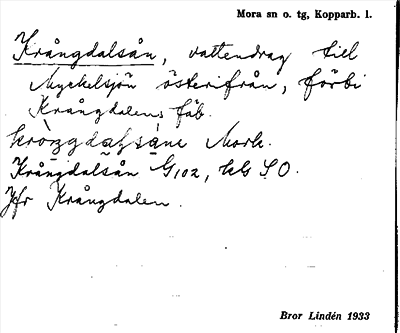 Mora sn o. tg, Kopparb. l.
Krångdalsån, vattendrag till
Myckelsjön österifrån, förbi
Krångdalens fäb.
Mork.
Krångdalsån G102, hls SO.
Jfr Krångdalen.
Bror Lindén 1933